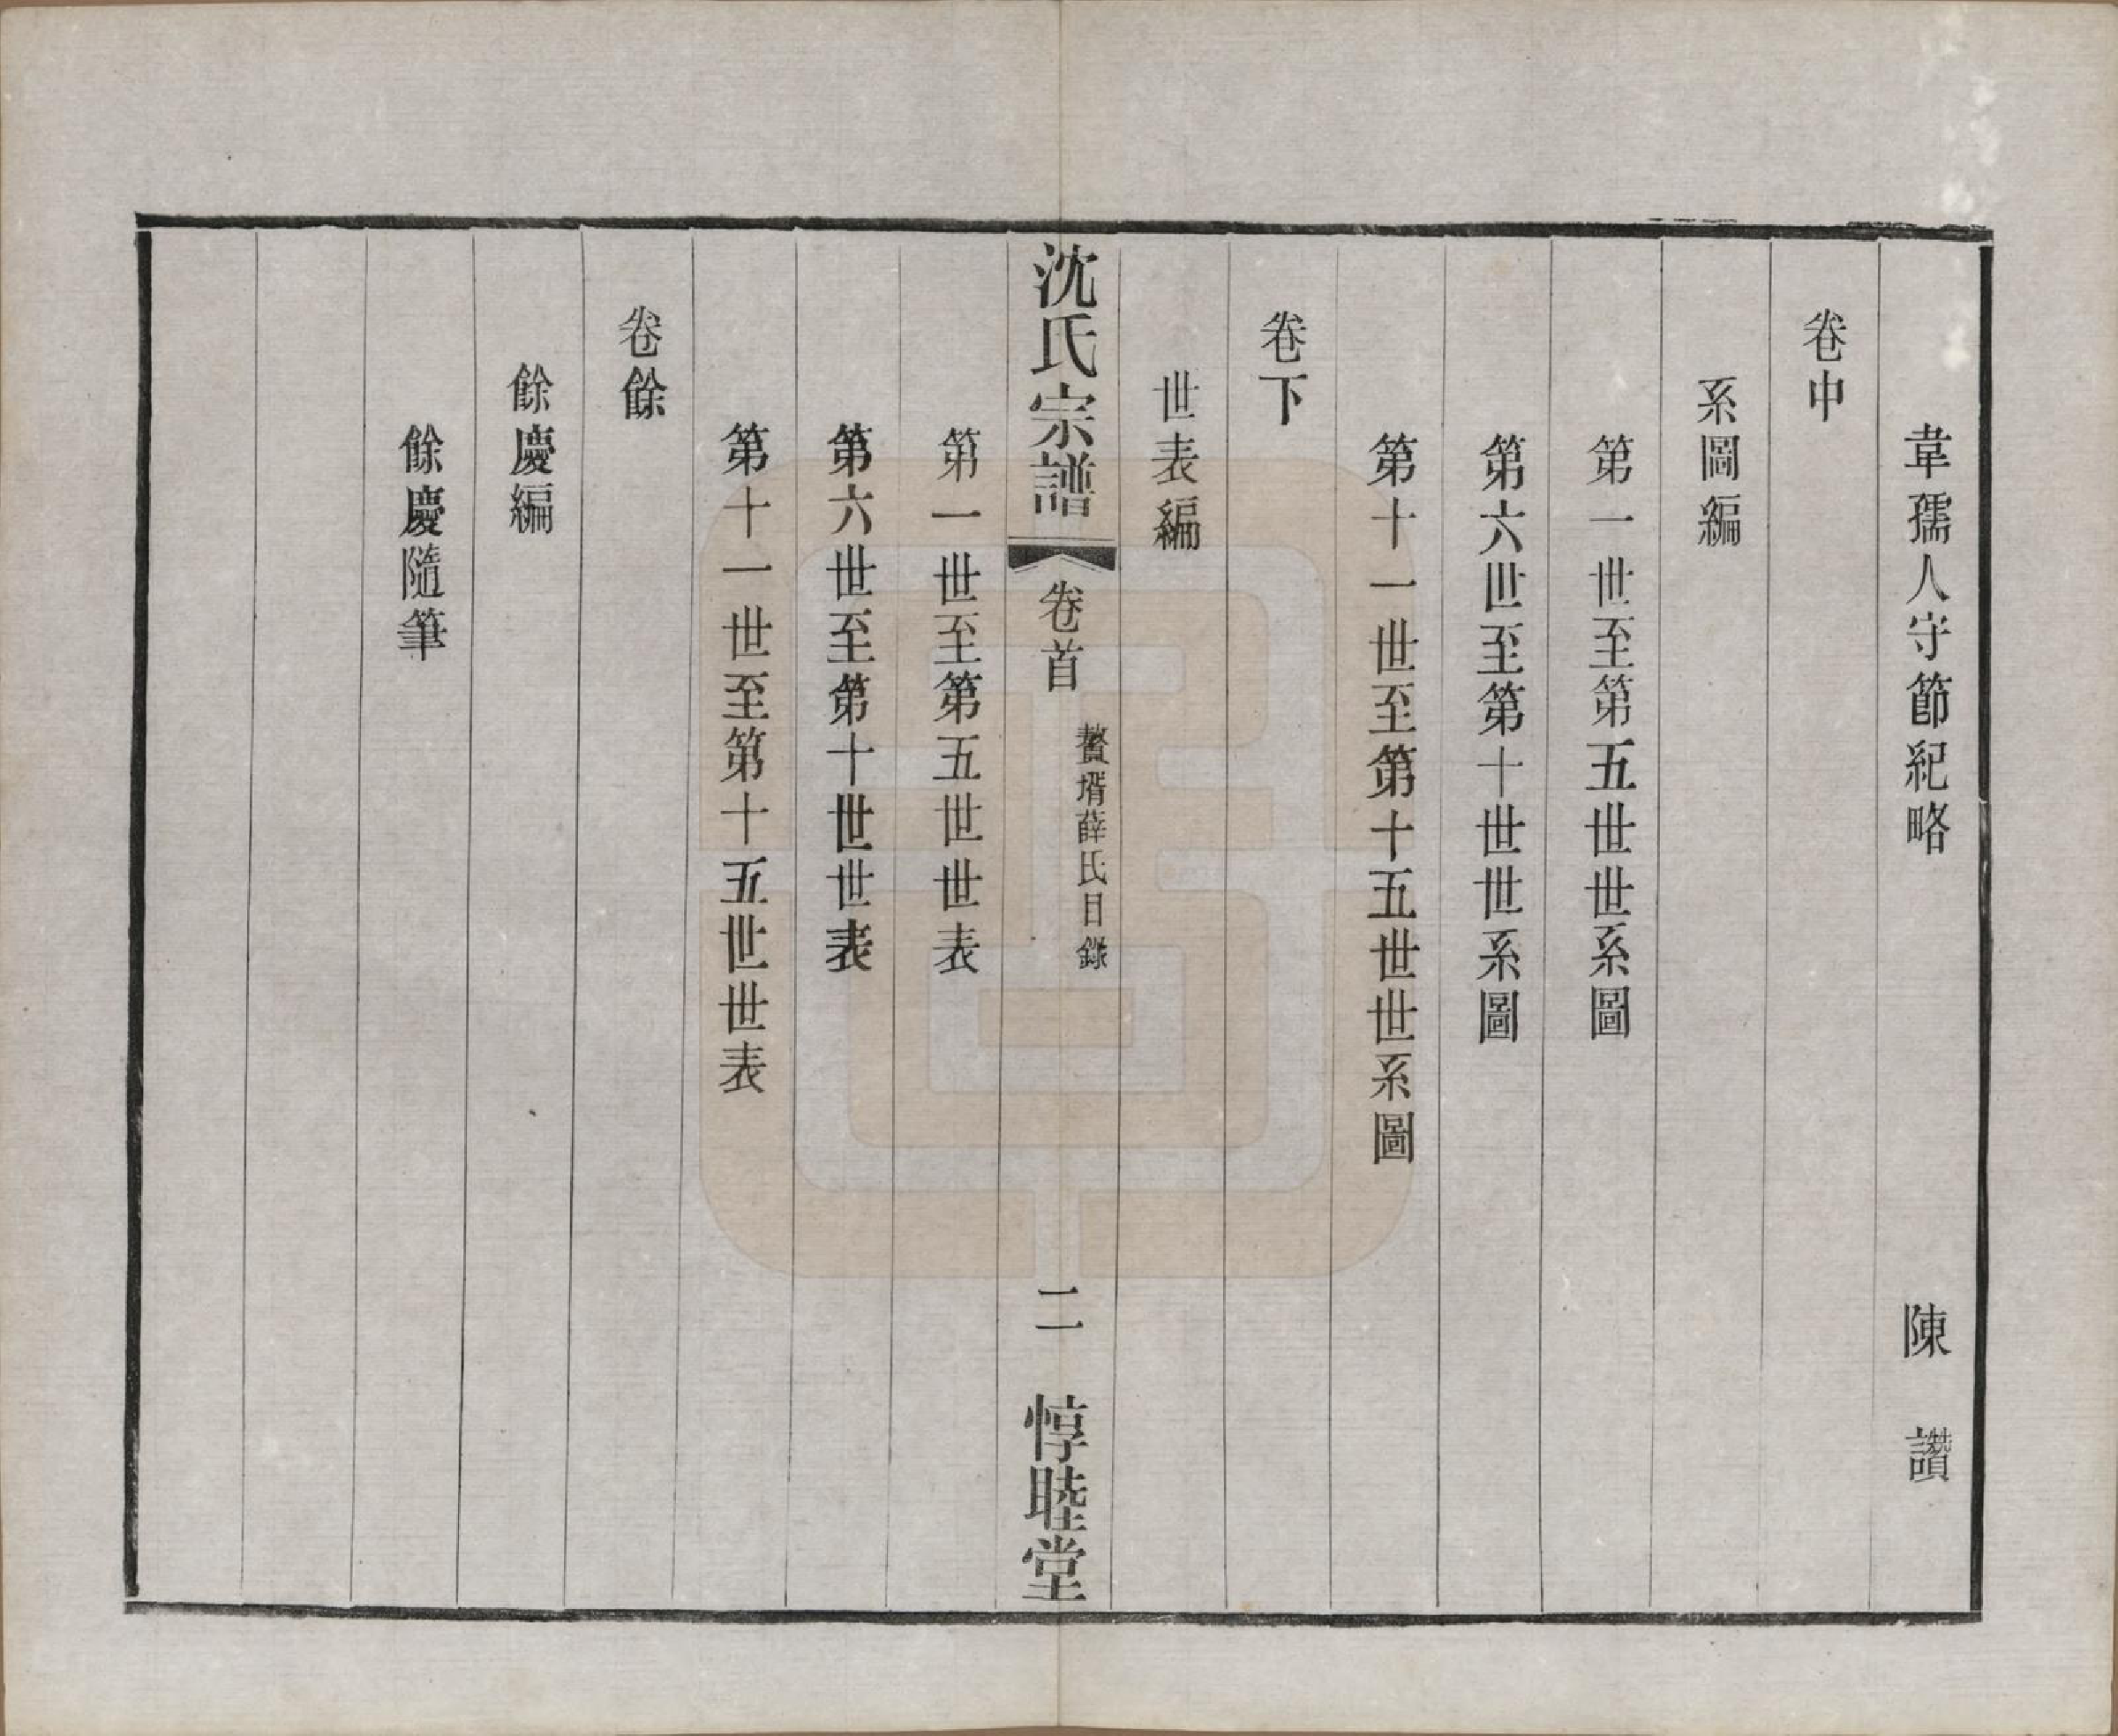 韋孺人守節紀略　陳　讚
卷中
系圖編
第一世至第五世世系圖
第六世至第十世世系圖
第十一世至第十五世世系圖
卷下
世表編
沈氏宗譜　卷首　贅壻薛氏目錄　二　惇睦堂
第一世至第五世世表
第六世至第十世世表
第十一世至第十五世世表
卷餘
餘慶編
餘慶隨筆